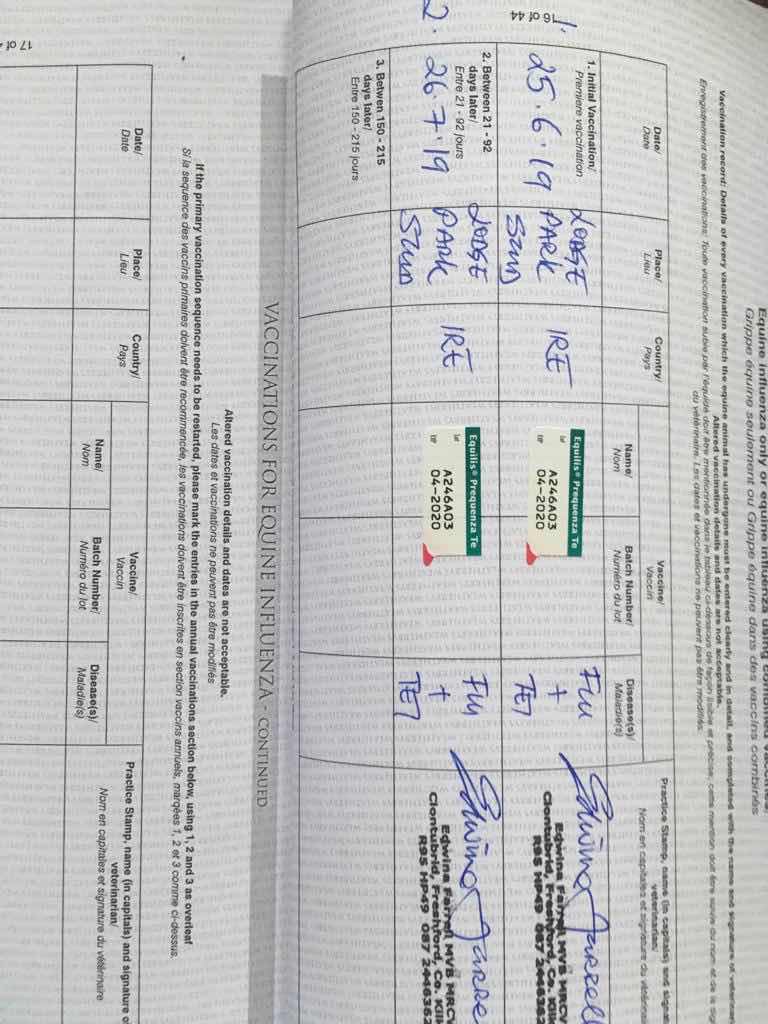 16 of 44
1.
Equine influenza only or equine influenza using combined vaccines/
Grippe équine seulement ou Grippe équine dans des vaccins combinés
Vaccination record: Details of every vaccination which the equine animal has undergone must be entered clearly and in detail, and completed with the name and signature of veterinar
Altered vaccination details and dates are not acceptable.
Enregistrement des vaccinations: Toute vaccination subie par l'équidé doit être mentionnée dans le tableau ci-dessous de façon lisible et précise, cette mention doit être suivie du nom et de la sig
du vétérinaire. Les dates et vaccinations ne peuvent pas être modifiés.
Date/
Date
Place/
Lieu
Country/
Pays
Vaccine/
Vaccin
Name/
Nom
Batch Number/
Numéro du lot
Disease(s)/
Maladie(s)
Practice Stamp, name (in capitals) and signat
veterinarian/
Nom en capitales et signature du vé
1. Initial Vaccination/
Premiere vaccination
25.6.19
LODGE
PARK
STUD
IRE
Equilis® Prequenza Te
A246A03
04-2020
Flu
+
TET
Edwina Farrell
Edwina Farrell MVB MRCV
Clontubrid, Freshford, Co. Kilk
R95 HP49 087 2446362
2.
2. Between 21 - 92
days later/
Entre 21 - 92 jours
26.7.19
LODGE
PARK
STUD
IRE
Equilis® Prequenza Te
A246A03
04-2020
Flu
+
TET
Edwina Farre
Edwina Farrell MVB MRCV
Clontubrid, Freshford, Co. Kilk
R95 HP49 087 2446362
3. Betwen 150 - 215
days later/
Entre 150 - 215 jours
VACCINATIONS FOR EQUINE INFLUENZA - CONTINUED
Altered vaccination details and dates are not acceptable.
Les dates et vaccinations ne peuvent pas être modifiés
If the primary vaccination sequence needs to be restarted, please mark the entries in the annual vaccinations section below, using 1, 2 and 3 as overleaf
Si la sequence des vaccins primaires doivent être recommencée, les vaccinations doivent être inscrites en section vaccins annuels, marqées 1, 2 et 3 comme ci-dessus.
17 of
Date/
Date
Place/
Lieu
Country/
Pays
Vaccine/
Vaccin
Name/
Nom
Batch Number/
Numéro du lot
Disease(s)/
Maladie(s)
Practice Stamp, name (in capitals) and signature o
veterinarian/
Nom en capitales et signature du vétérinaire